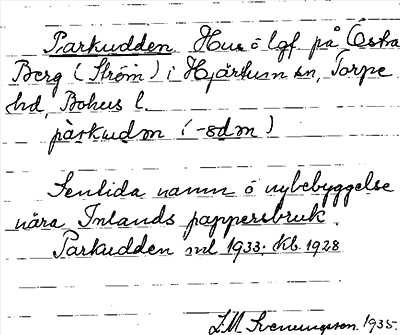 Parkudden. Hus ö lgf. på Östra
Berg (Ström) i Hjärtum sn, Torpe
hd, Bohus l.
parkudn (-sdn)
Sentida namn å nybebyggelse
nära Inlands pappersbruk.
Parkudden ml. 1933. Kb. 1928
Sveningson. 1935.